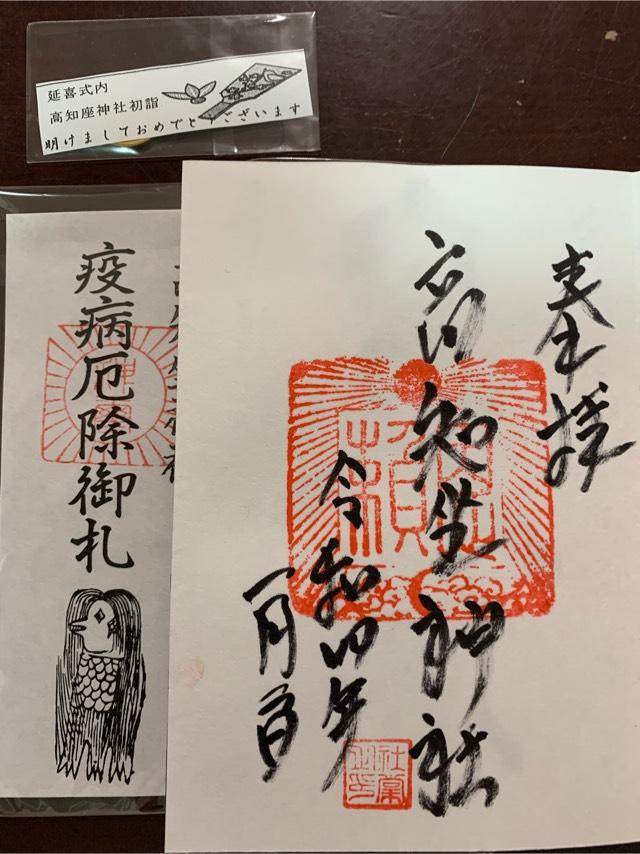 延喜式内
高知座神社初詣
明けましておめでとうございます
疫病厄除御札
奉拝
高知坐神社
令和四年
一月